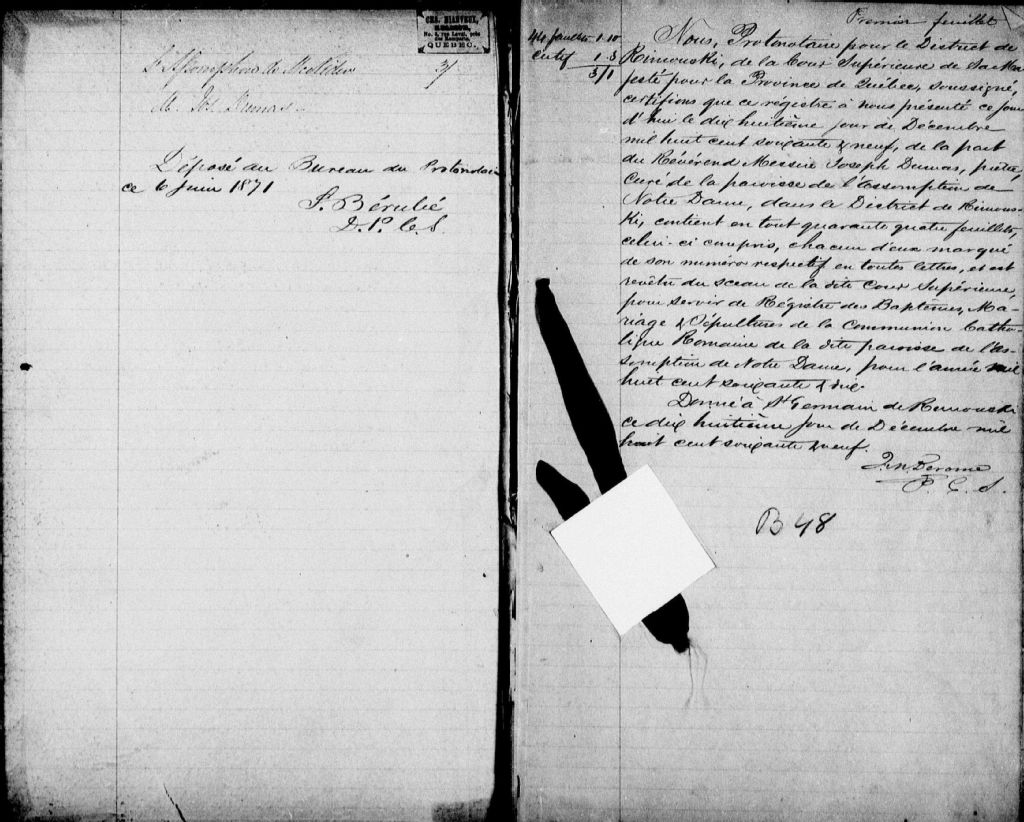 CHS. MIARVEUX,
RELIEUR,
No. 8, rue Laval, près
des Remparts,
QUEBEC.
L'Assomption de
3/
M. Jos. Dumas
Déposé au Bureau du Protonotaire
ce 6 Juin 1871
P. Bérubé
D. P. C. S.
Premier feuillet
44 feuillets 1-10
Certif 1-3
3/1
Nous, Protonotaire pour le District de
Rimouski, de la Cour Supérieure de Sa Ma
jesté pour la Province de Québec, soussigné,
certifions que ce régistre à nous présenté ce jour
d'hui le dix huitième jour de Décembre
mil huit cent soixante & neuf, de la part
du Révérend Messire Joseph Dumas, prêtre,
curé de la paroisse de l'assomption de
Notre Dame, dans le District de Rimous-
ki, contient en tout quarante quatre feuillets,
celui-ci compris, chacun d'eux marqué
de son numéro respectif en toutes lettres, et est
revêtu du sceau de la dite Cour Supérieure,
pour servir de Régistre des Baptêmes, Ma-
riage & Sépultures de la Communion Catho-
lique Romaine de la dite paroisse de l'as-
somption de Notre Dame, pour l'année mil
huit cent soixante & dix.
Donné à St Germain de Rimouski
ce dix huitième jour de Décembre mil
huit cent soixante & neuf.
Derome
P. C. S.
B 48